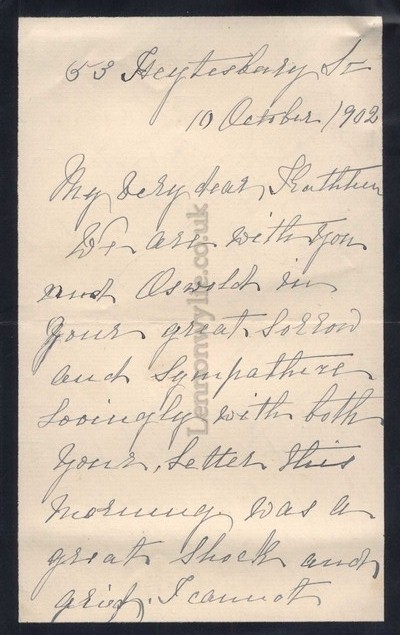 53 Heytesbury St
10 October 1902
My very dear Kathleen
We are with you
and Oswold in
your great sorrow
and sympathize
lovingly with both
your letter this
morning was a
great shock and
grief. I cannot
Lennonwylie.co.uk